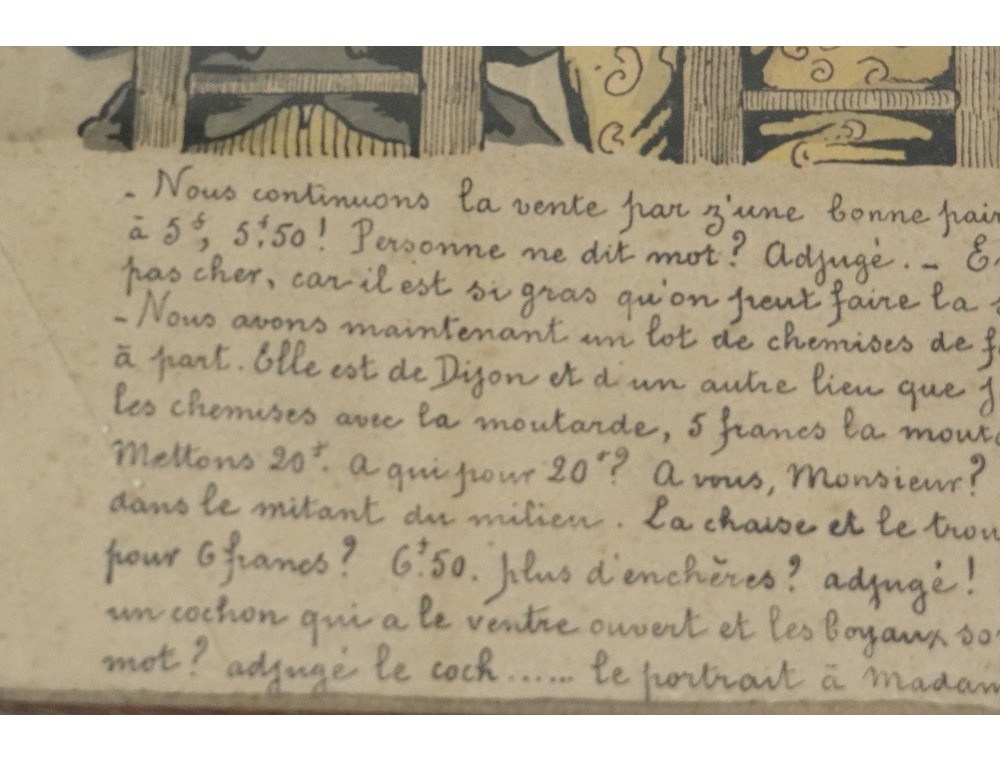 - Nous continuons la vente par z'une bonne pair
à 5f, 5f.50! Personne ne dit mot? Adjugé. -
pas cher, car il est si gras qu'on peut faire la
- Nous avons maintenant un lot de chemises de
à part. Elle est de Dijon et d'un autre lieu que
les chemises avec la moutarde, 5 francs la
Mettons 20f. A qui pour 20f? A vous, Monsieur?
dans le mitant du milieu. La chaise et le trou
pour 6 francs? 6f.50. plus d'enchères? adjugé!
un cochon qui a le ventre ouvert et les boyaux
mot? adjugé le coch...... le portrait à Madam